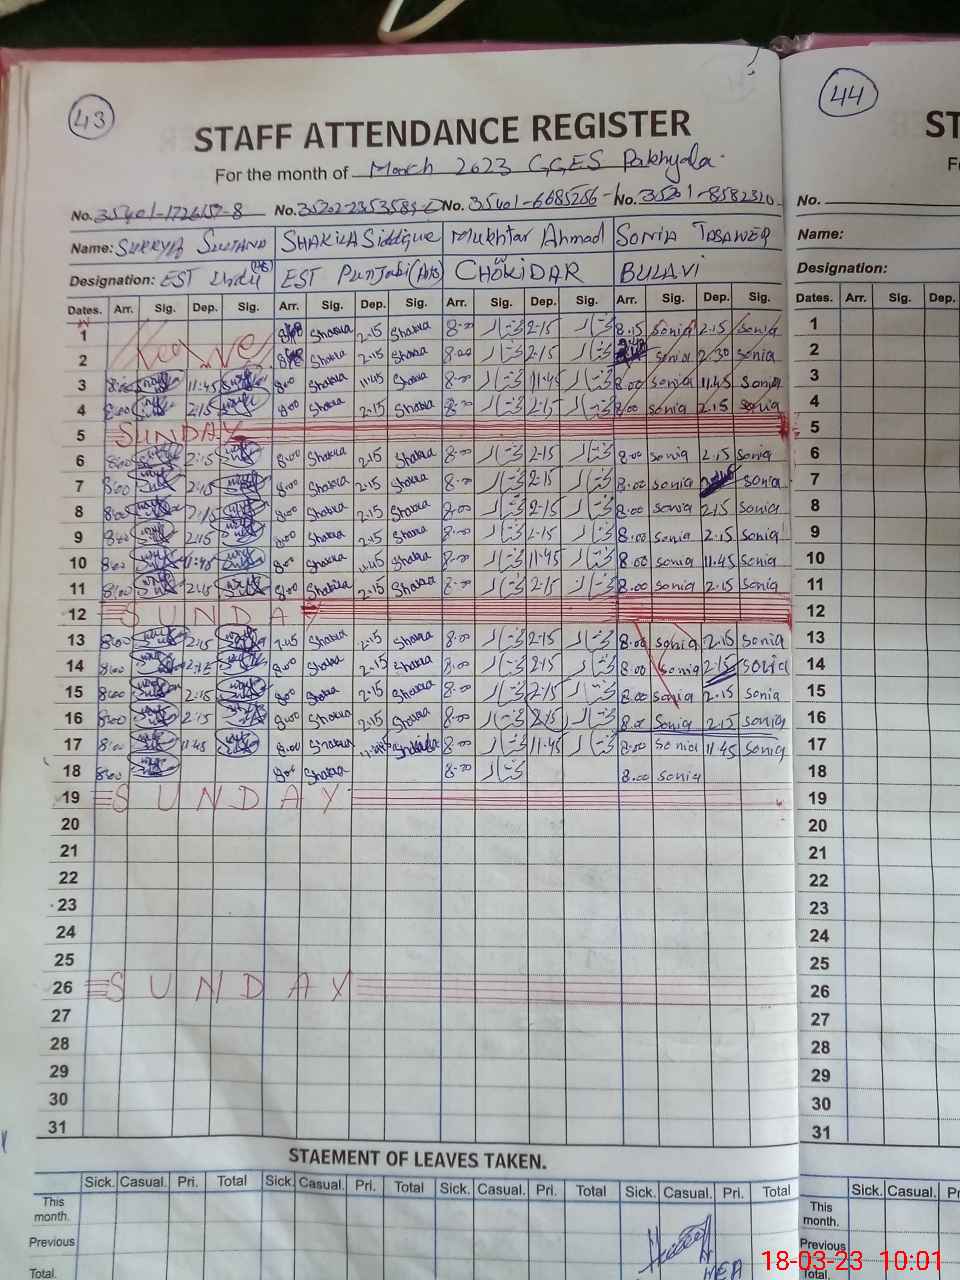 43
STAFF ATTENDANCE REGISTER
For the month of March 2023 GGES Pakhyala
No. 35401-1726157-8 No. 35202-2353589- No. 35401-6685256- No. 35201-8582310
Name: SURRYA SULTANA SHAKILA Siddique Mukhtar Ahmad SONIA TASAWER
Designation: EST Urdu EST Punjabi (Arts) CHOKIDAR BULAVI
Dates. Arr. Sig. Dep. Sig. Arr. Sig. Dep. Sig. Arr. Sig. Dep. Sig. Arr. Sig. Dep. Sig.
1 Leave Shakila 2.15 Shakila 8.00 مختار 2.15 مختار 8.15 Sonia 2.15 Sonia
2 Shakila 2.15 Shakila 8.00 مختار 2.15 مختار Sonia 2.30 Sonia
3 8:00 11:45 8.00 Shakila 11.45 Shakila 8.00 مختار 11.45 مختار 8.00 Sonia 11.45 Sonia
4 8:00 2:15 8.00 Shakila 2.15 Shakila 8.00 مختار 2.15 مختار 8.00 Sonia 2.15 Sonia
5 SUNDAY
6 8:00 2:15 8.00 Shakila 2.15 Shakila 8.00 مختار 2.15 مختار 8.00 Sonia 2.15 Sonia
7 8:00 2:15 8.00 Shakila 2.15 Shakila 8.00 مختار 2.15 مختار 8.00 Sonia Sonia
8 8:00 2:15 8.00 Shakila 2.15 Shakila 8.00 مختار 2.15 مختار 8.00 Sonia 2.15 Sonia
9 8:00 2:15 8.00 Shakila 2.15 Shakila 8.00 مختار 2.15 مختار 8.00 Sonia 2.15 Sonia
10 8:00 11:45 8.00 Shakila 11.45 Shakila 8.00 مختار 11.45 مختار 8.00 Sonia 11.45 Sonia
11 8:00 2:15 8.00 Shakila 2.15 Shakila 8.00 مختار 2.15 مختار 8.00 Sonia 2.15 Sonia
12 SUNDA
13 8:00 2:15 7.45 Shakila 2.15 Shakila 8.00 مختار 2.15 مختار 8.00 Sonia 2.15 Sonia
14 8:00 2:15 8.00 Shakila 2.15 Shakila 8.00 مختار 2.15 مختار 8.00 Sonia 2.15 Sonia
15 8:00 2:15 8.00 Shakila 2.15 Shakila 8.00 مختار 2.15 مختار 8.00 Sonia 2.15 Sonia
16 8:00 2:15 8.00 Shakila 2.15 Shakila 8.00 مختار 2.15 مختار 8.00 Sonia 2.15 Sonia
17 8:00 11:45 8.00 Shakila Shakila 8.00 مختار 11.45 مختار 8.00 Sonia 11.45 Sonia
18 8:00 8.00 Shakila 8.00 مختار 8.00 Sonia
19 SUNDAY
20
21
22
23
24
25
26 SUNDAY
27
28
29
30
31
STAEMENT OF LEAVES TAKEN.
Sick. Casual. Pri. Total Sick. Casual. Pri. Total Sick. Casual. Pri. Total Sick. Casual. Pri. Total
This month.
Previous
Total.
44
ST
No.
Name:
Designation:
Dates. Arr. Sig. Dep.
1
2
3
4
5
6
7
8
9
10
11
12
13
14
15
16
17
18
19
20
21
22
23
24
25
26
27
28
29
30
31
Sick. Casual.
This month.
Previous
Total.
18-03-23 10:01